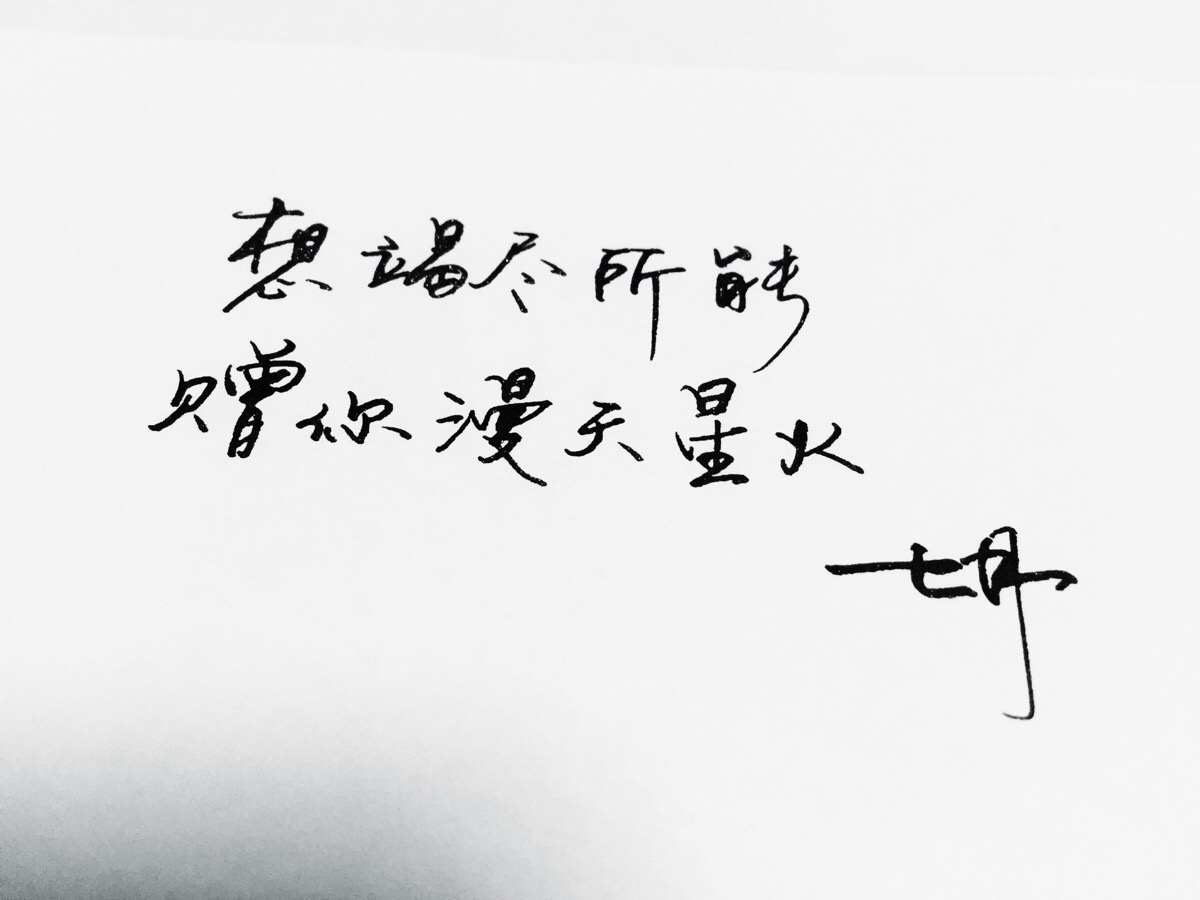 想竭尽所能
赠你漫天星火